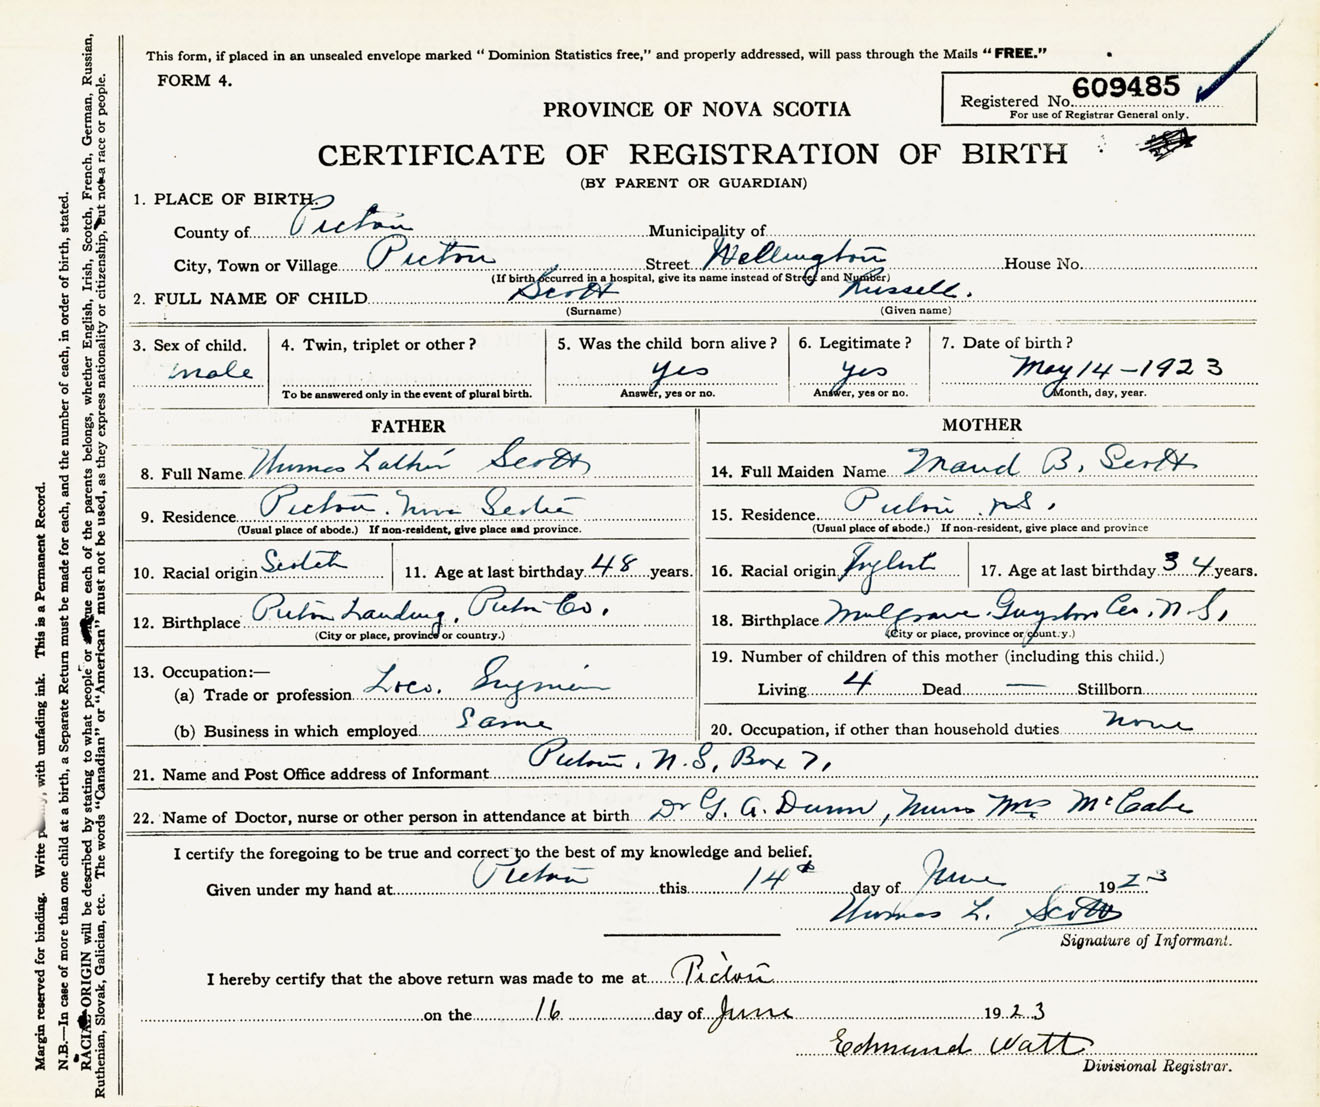 This form, if placed in an unsealed envelope marked “Dominion Statistics free,” and properly addressed, will pass through the Mails “FREE.”
FORM 4.
Registered No. 609485
For use of Registrar General only.
PROVINCE OF NOVA SCOTIA
CERTIFICATE OF REGISTRATION OF BIRTH
(BY PARENT OR GUARDIAN)
1. PLACE OF BIRTH.
County of Pictou Municipality of
City, Town or Village Pictou Street Wellington House No.
(If birth occurred in a hospital, give its name instead of Street and Number)
2. FULL NAME OF CHILD Scott Russell.
(Surname) (Given name)
3. Sex of child. 4. Twin, triplet or other? 5. Was the child born alive? 6. Legitimate? 7. Date of birth?
male yes yes May 14 - 1923
To be answered only in the event of plural birth. Answer, yes or no. Answer, yes or no. Month, day, year.
FATHER MOTHER
8. Full Name Thomas Scott 14. Full Maiden Name Maud B. Scott
9. Residence Pictou. Nova Scotia 15. Residence Pictou N.S.
(Usual place of abode.) If non-resident, give place and province. (Usual place of abode.) If non-resident, give place and province
10. Racial origin Scotch 11. Age at last birthday 48 years. 16. Racial origin English 17. Age at last birthday 34 years.
12. Birthplace Pictou Landing, Pictou Co. 18. Birthplace Mulgrave. Guysboro Co. N.S.
(City or place, province or country.) (City or place, province or count.y.)
19. Number of children of this mother (including this child.)
13. Occupation:—
(a) Trade or profession Loco. Engineer Living 4 Dead — Stillborn
(b) Business in which employed Same 20. Occupation, if other than household duties none
21. Name and Post Office address of Informant Pictou, N.S, Box 7,
22. Name of Doctor, nurse or other person in attendance at birth Dr G. A. Dunn, Nurse Mrs McCabe
I certify the foregoing to be true and correct to the best of my knowledge and belief.
Given under my hand at Pictou this 14th day of June 1923
Thomas L. Scott
Signature of Informant.
I hereby certify that the above return was made to me at Pictou
on the 16 day of June 1923
Edmund Watt
Divisional Registrar.
Margin reserved for binding. Write with unfading ink. This is a Permanent Record.
N.B.—In case of more than one child at a birth, a Separate Return must be made for each, and the number of each, in order of birth, stated.
RACIAL ORIGIN will be described by stating to what people or each of the parents belongs, whether English, Irish, Scotch, French, German, Russian,
Ruthenian, Slovak, Galician, etc. The words “Canadian” or “American” must not be used, as they express nationality or citizenship, but not a race or people.